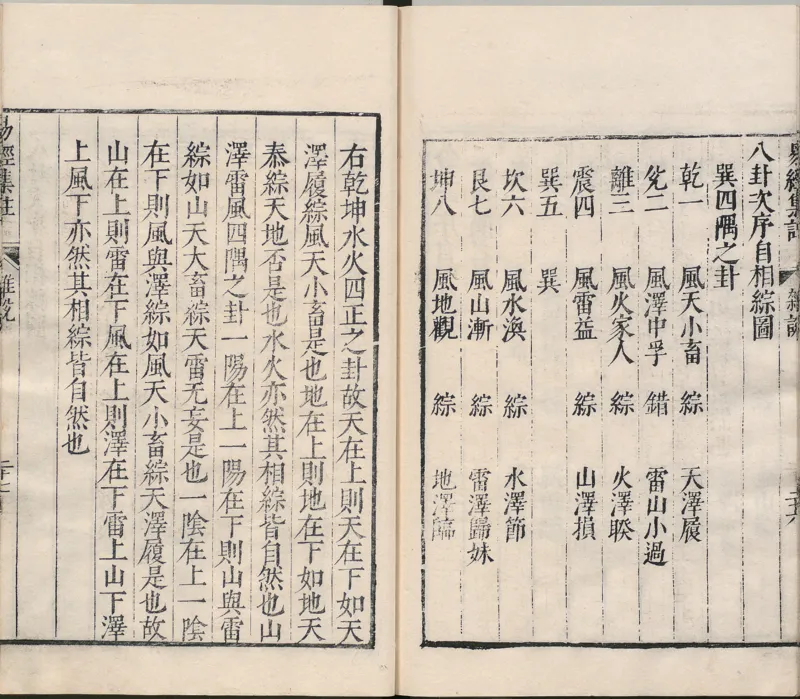 八卦次序自相綜圖
巽四隅之卦
乾一 風天小畜 綜 天澤履
兌二 風澤中孚 錯 雷山小過
離三 風火家人 綜 火澤睽
震四 風雷益 綜 山澤損
巽五 巽
坎六 風水渙 綜 水澤節
艮七 風山漸 綜 雷澤歸妹
坤八 風地觀 綜 地澤臨
右乾坤水火四正之卦故天在上則天在下如天
澤履綜風天小畜是也地在上則地在下如地天
泰綜天地否是也水火亦然其相綜皆自然也山
澤雷風四隅之卦一陽在上一陽在下則山與雷
綜如山天大畜綜天雷无妄是也一陰在上一陰
在下則風與澤綜如風天小畜綜天澤履是也故
山在上則雷在下風在上則澤在下雷上山下澤
上風下亦然其相綜皆自然也
易經集註 雜說